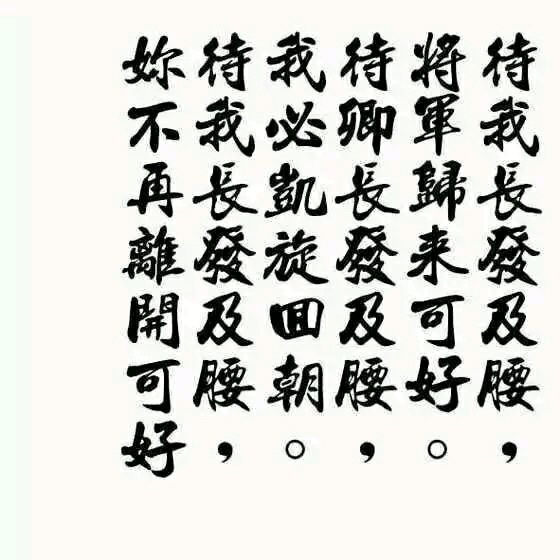 待我長發及腰，
將軍歸来可好。
待卿長發及腰，
我必凱旋回朝。
待我長發及腰，
妳不再離開可好